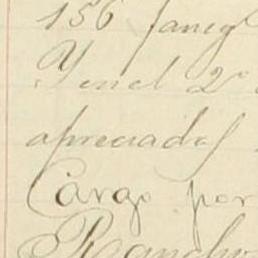 156 faneg
Y en el 2º
apreciados
Cargo por
Rancho